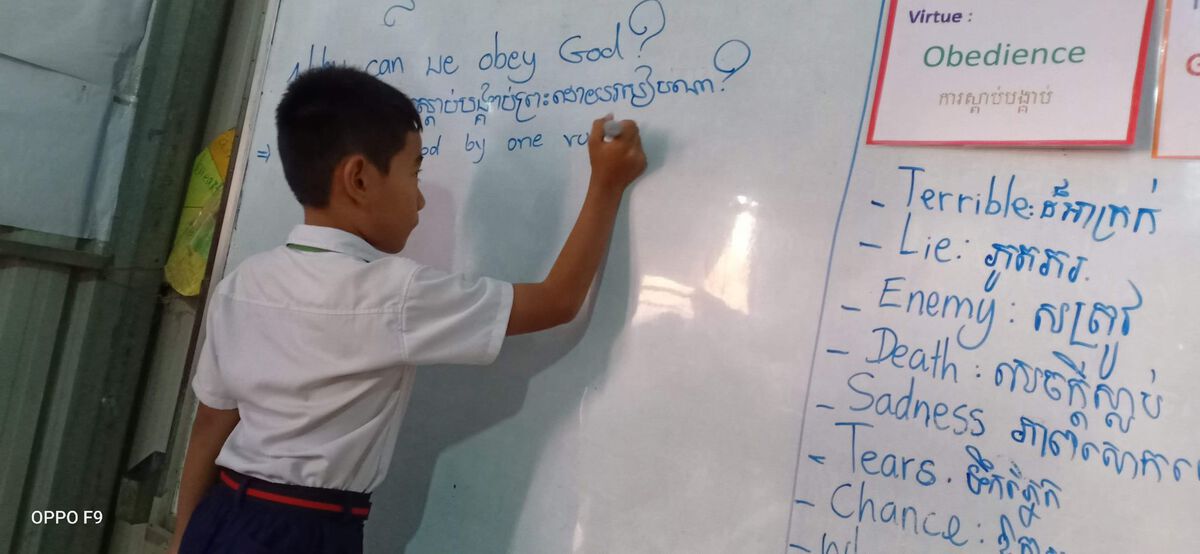 can we obey God?
ស្ដាប់បង្គាប់ព្រះដោយរបៀបណា?
⇒ by one
Virtue :
Obedience
ការស្ដាប់បង្គាប់
- Terrible: ដ៏អាក្រក់
- Lie: ភូតភរ.
- Enemy: សត្រូវ
- Death: សេចក្ដីស្លាប់
- Sadness
- Tears. ទឹកភ្នែក
- Chance:
OPPO F9